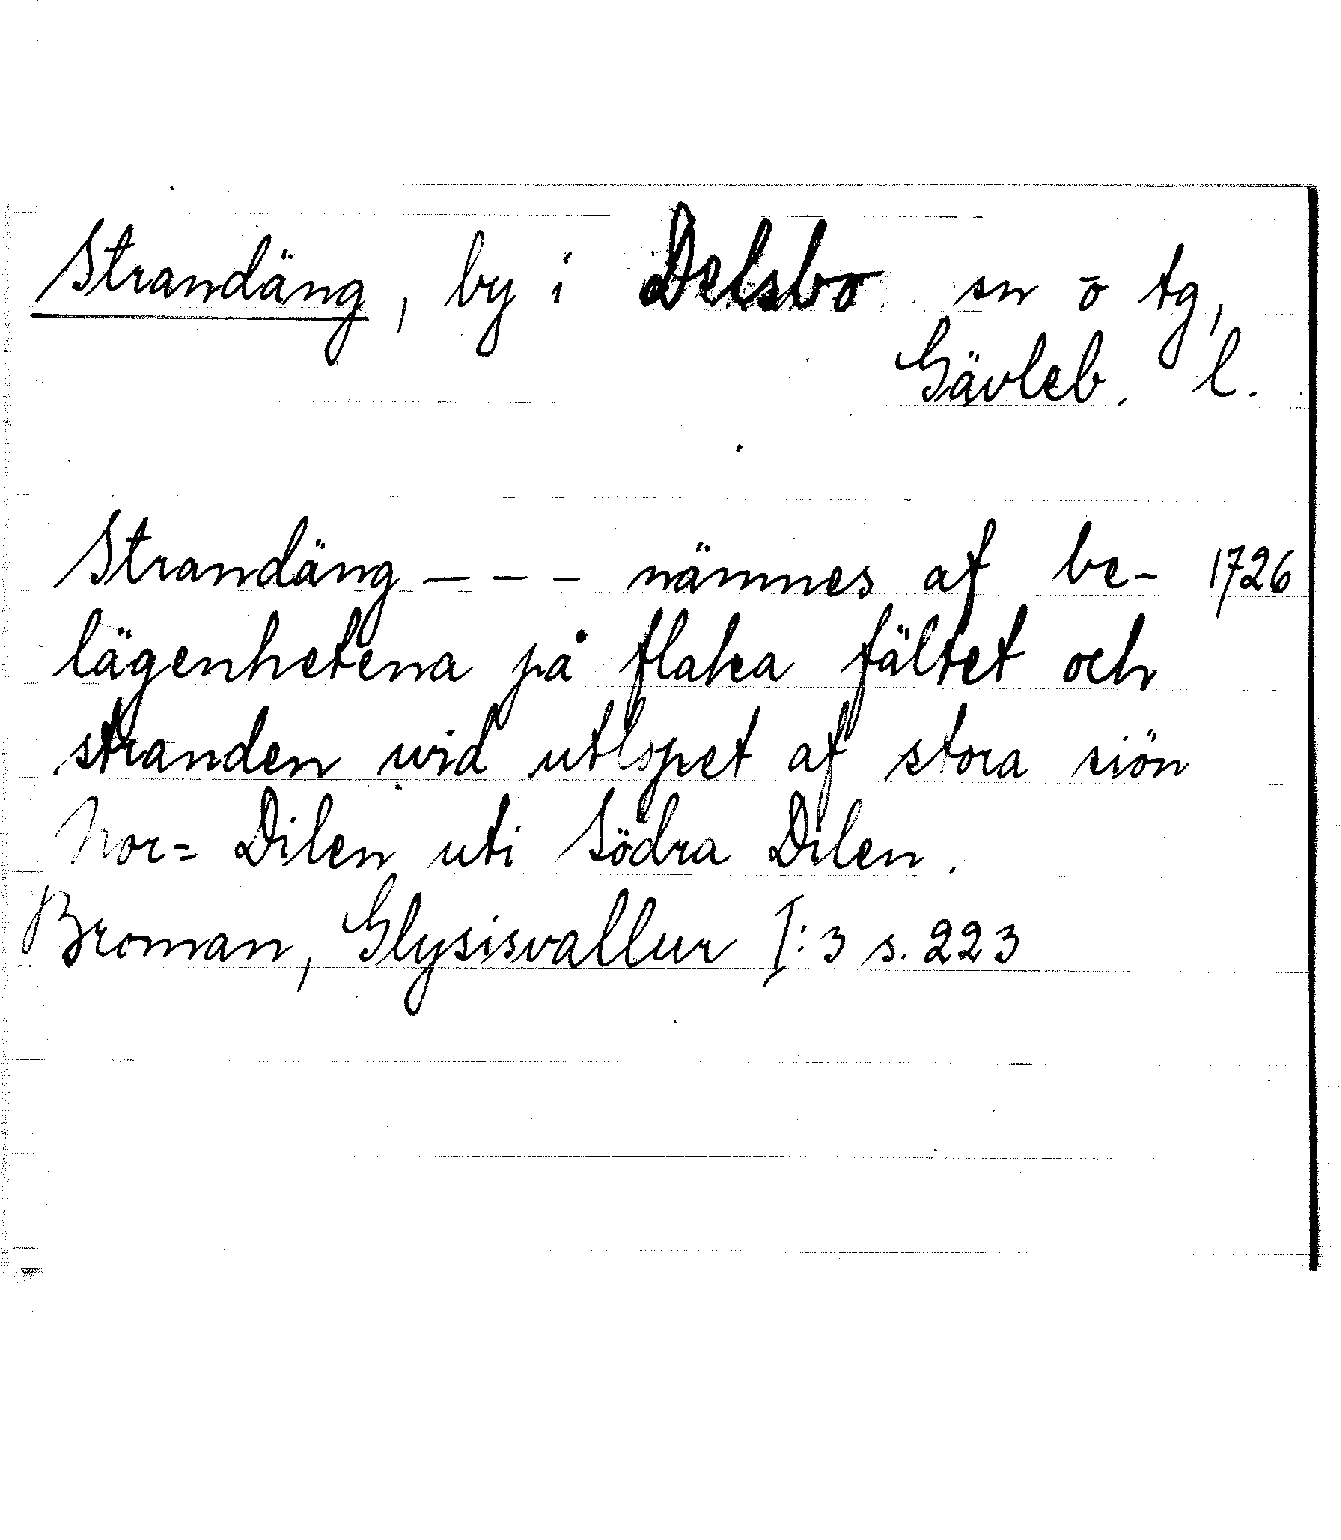 Strandäng, by i Delsbo sn o tg,
Gävleb. l.
Strandäng - - - nämnes af be- 1726
lägenhetena på flaka fältet och
stranden wid utlopet af stora siön
Nor= Dilen uti Södra Dilen.
Broman, Glysisvallur I:3 s. 223